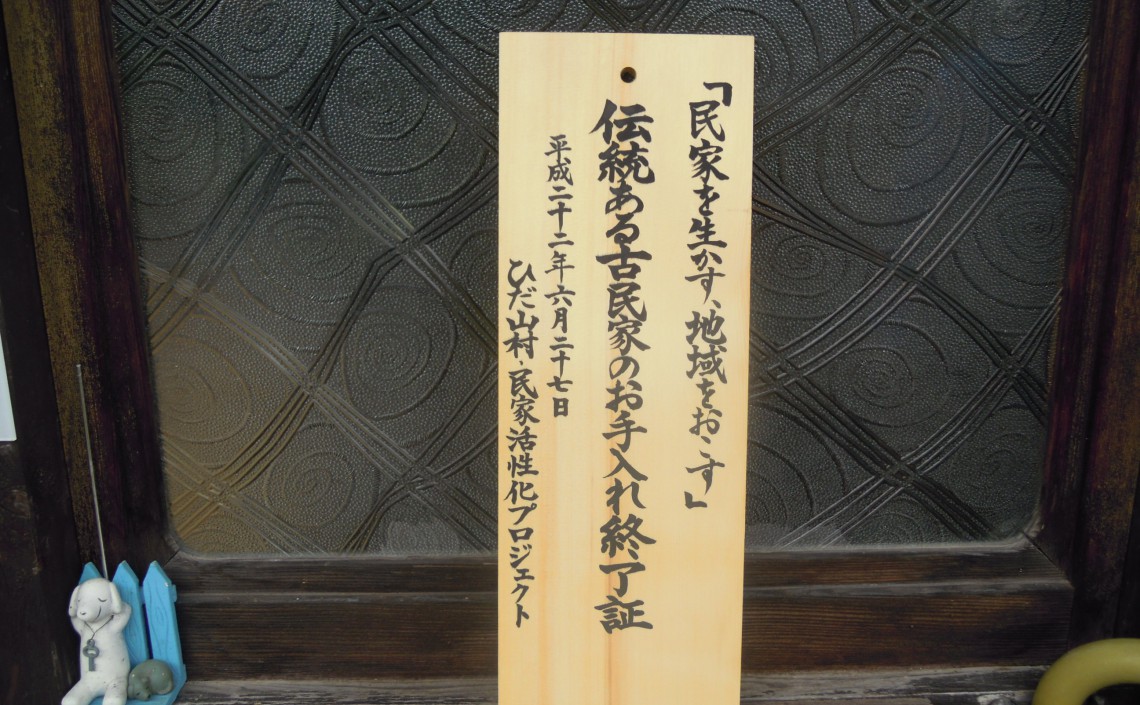 「民家を生かす、地域をおこす」
伝統ある古民家のお手入れ終了証
平成二十二年六月二十七日
ひだ山村・民家活性化プロジェクト